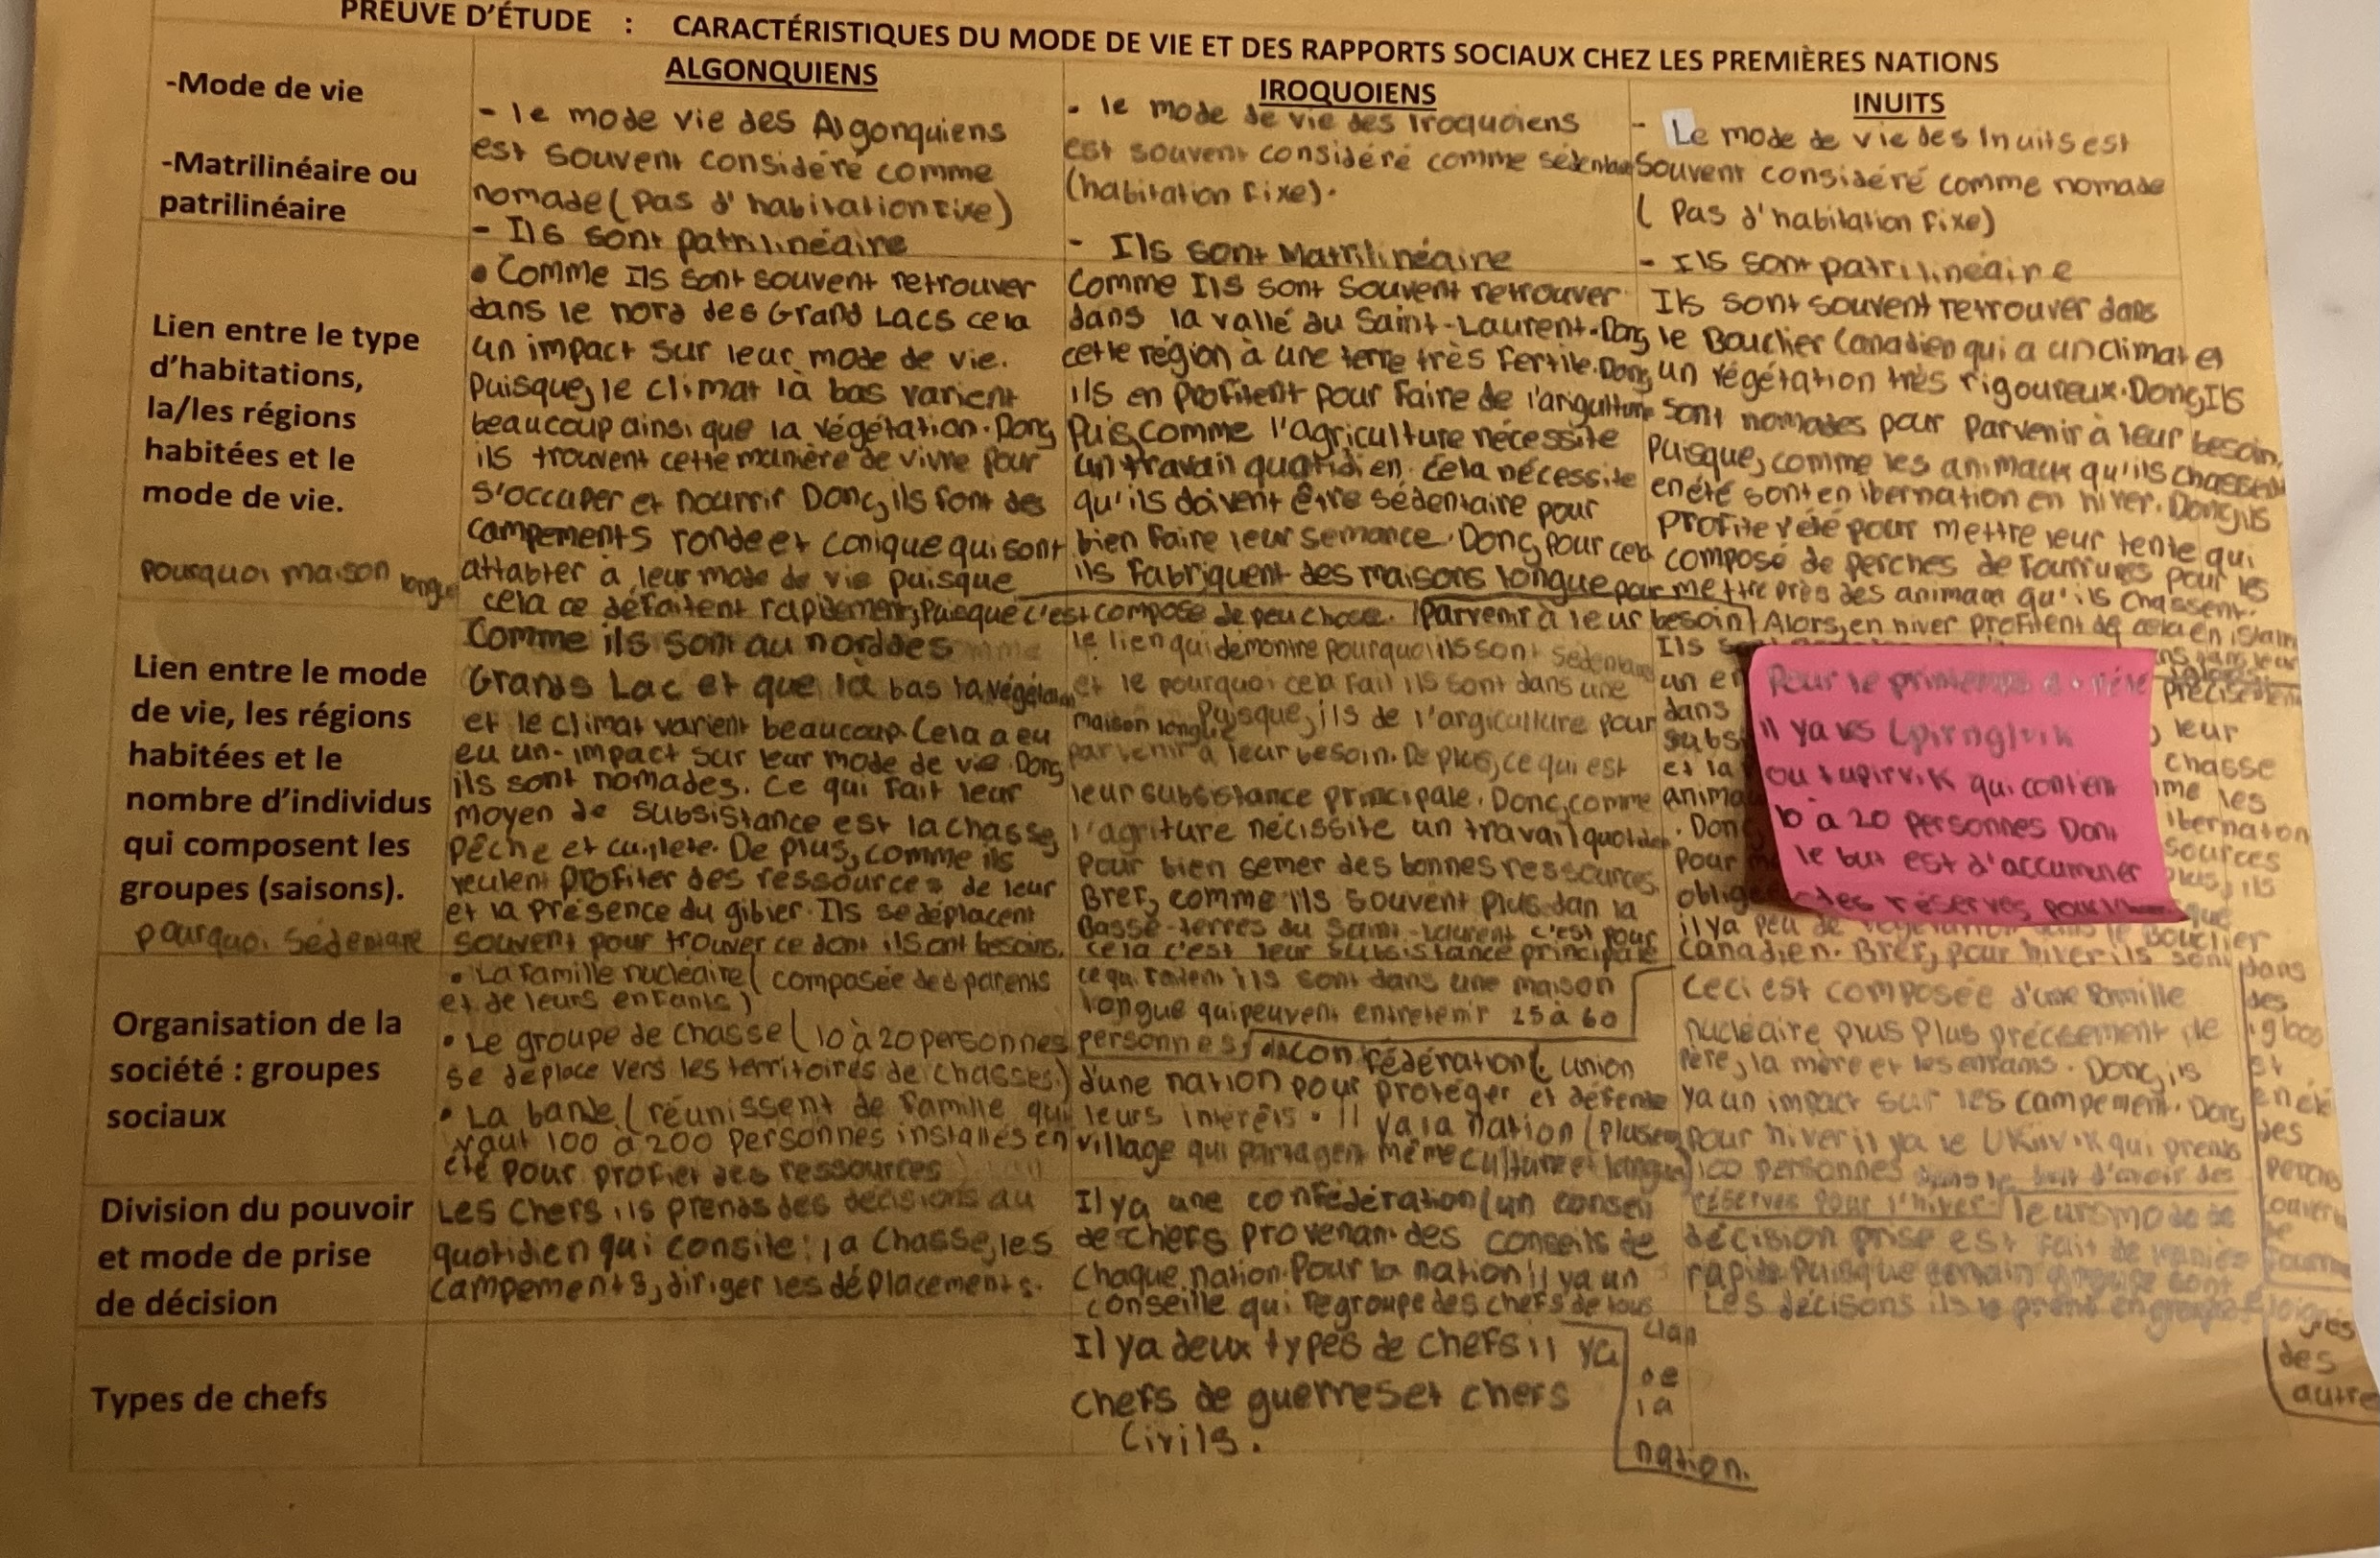 PREUVE D'ÉTUDE : CARACTÉRISTIQUES DU MODE DE VIE ET DES RAPPORTS SOCIAUX CHEZ LES PREMIÈRES NATIONS
-Mode de vie
-Matrilinéaire ou
patrilinéaire
ALGONQUIENS
- le mode vie des Algonquiens
est souvent considéré comme
nomade (Pas d'habitation fixe)
- Ils sont patrilinéaire
IROQUOIENS
- le mode de vie des Iroquoiens
est souvent considéré comme sédentaire
(habitation fixe).
- Ils sont Matrilinéaire
INUITS
- Le mode de vie des Inuits est
souvent considéré comme nomade
( Pas d'habitation fixe)
- Ils sont patrilinéaire
Lien entre le type
d'habitations,
la/les régions
habitées et le
mode de vie.
pourquoi maison longue
• Comme Ils sont souvent retrouver
dans le nord des Grand Lacs cela
un impact sur leur mode de vie.
Puisque, le climat là bas varient
beaucoup ainsi que la végétation. Donc,
ils trouvent cette manière de vivre pour
s'occuper et nourrir Donc, ils font des
campements ronde et conique qui sont
attabter à leur mode de vie puisque
cela ce défaitent rapidement, Puisque c'est composé de peu chose.
Comme Ils sont souvent retrouver
dans la vallé du Saint-Laurent. Donc,
cette région à une terre très fertile. Donc,
ils en profitent pour faire de l'arigulture
Puis, comme l'agriculture nécessite
un travail quotidien. Cela nécessite
qu'ils doivent être sédentaire pour
bien faire leur semance. Donc, pour cela
ils fabriquent des maisons longue pour
parvenir à leur besoin
Ils sont souvent retrouver dans
le Bouclier Canadien qui a un climat et
un végétation très rigoureux. Donc, Ils
sont nomades pour parvenir à leur besoin.
Puisque, comme les animaux qu'ils chassent
en été sont en ibernation en hiver. Donc, ils
profite l'été pour mettre leur tente qui
composé de perches de fourrures pour les
mettre près des animaux qu'ils chassent.
Alors, en hiver profitent de cela en
Lien entre le mode
de vie, les régions
habitées et le
nombre d'individus
qui composent les
groupes (saisons).
pourquoi sédentaire
Comme ils sont au nord des
Grands Lac et que là bas la végétation
et le climat varient beaucoup. Cela a eu
eu un impact sur leur mode de vie. Donc,
ils sont nomades. Ce qui fait leur
moyen de subsistance est la chasse,
Pêche et cuillete. De plus, comme ils
veulent profiter des ressources de leur
et la présence du gibier. Ils se déplacent
souvent pour trouver ce dont ils ont besoins.
le lien qui démontre pourquoi ils sont sédentaire
et le pourquoi cela fait ils sont dans une
maison longue Puisque, ils de l'argiculture pour
parvenir à leur besoin. De plus, ce qui est
leur subsistance principale. Donc, comme
l'agriture nécissite un travail quotidien.
Pour bien semer des bonnes ressources.
Bref, comme ils souvent plus dan la
Basse-terres du Saint-Laurent c'est pour
cela c'est leur subsistance principale
ce qui faitent ils sont dans une maison
longue qui peuvent entretenir 25 à 60
personnes
Ils
un
dans
subs
et la
anima
Donc
pour
oblige
il y a peu de végétation dans le Bouclier
Canadien. Bref, pour hiver ils sont dans
des
igloos
et
en été
des
perches
couvert
de
fourrure
précisement
leur
chasse
les
ibernation
sources
plus, ils
que
Pour le printemps
il y a les
ou tupirvik qui contient
10 à 20 personnes Dont
le but est d'accumuler
des réserves pour
Organisation de la
société : groupes
sociaux
• La famille nucléaire ( composée des parents
et de leurs enfants)
• Le groupe de chasse ( 10 à 20 personnes
se déplace vers les territoires de chasses.)
• La bande ( réunissent de famille qui
vaut 100 à 200 personnes installés en
été pour profier des ressources)
confédération ( union
d'une nation pour protéger et défendre
leurs intérêts. Il y a la nation (
village qui partagent même culture et langue)
Ceci est composée d'une famille
nucléaire plus Plus précisement le
Père, la mère et les enfants. Donc, ils
ya un impact sur les campement. Donc,
pour hiver il ya le Ukiivik qui prends
100 personnes dans le but d'avoir des
réserves pour l'hiver.
Division du pouvoir
et mode de prise
de décision
Les chefs ils prends des décisions au
quotidien qui consite: la chasse, les
campements, diriger les déplacements.
Il ya une confédération (un conseil
de chefs provenant des conseils de
chaque nation. Pour la nation il ya un
conseille qui regroupe des chefs de tous
clan
de
la
nation.
leurs mode de
décision prise est fait de manière
rapide Puisque certain groupe sont
éloignés
des
autre
Les décisons ils le prend en groupe.
Types de chefs
Il ya deux types de chefs il ya
chefs de guerres et chefs
Civils.